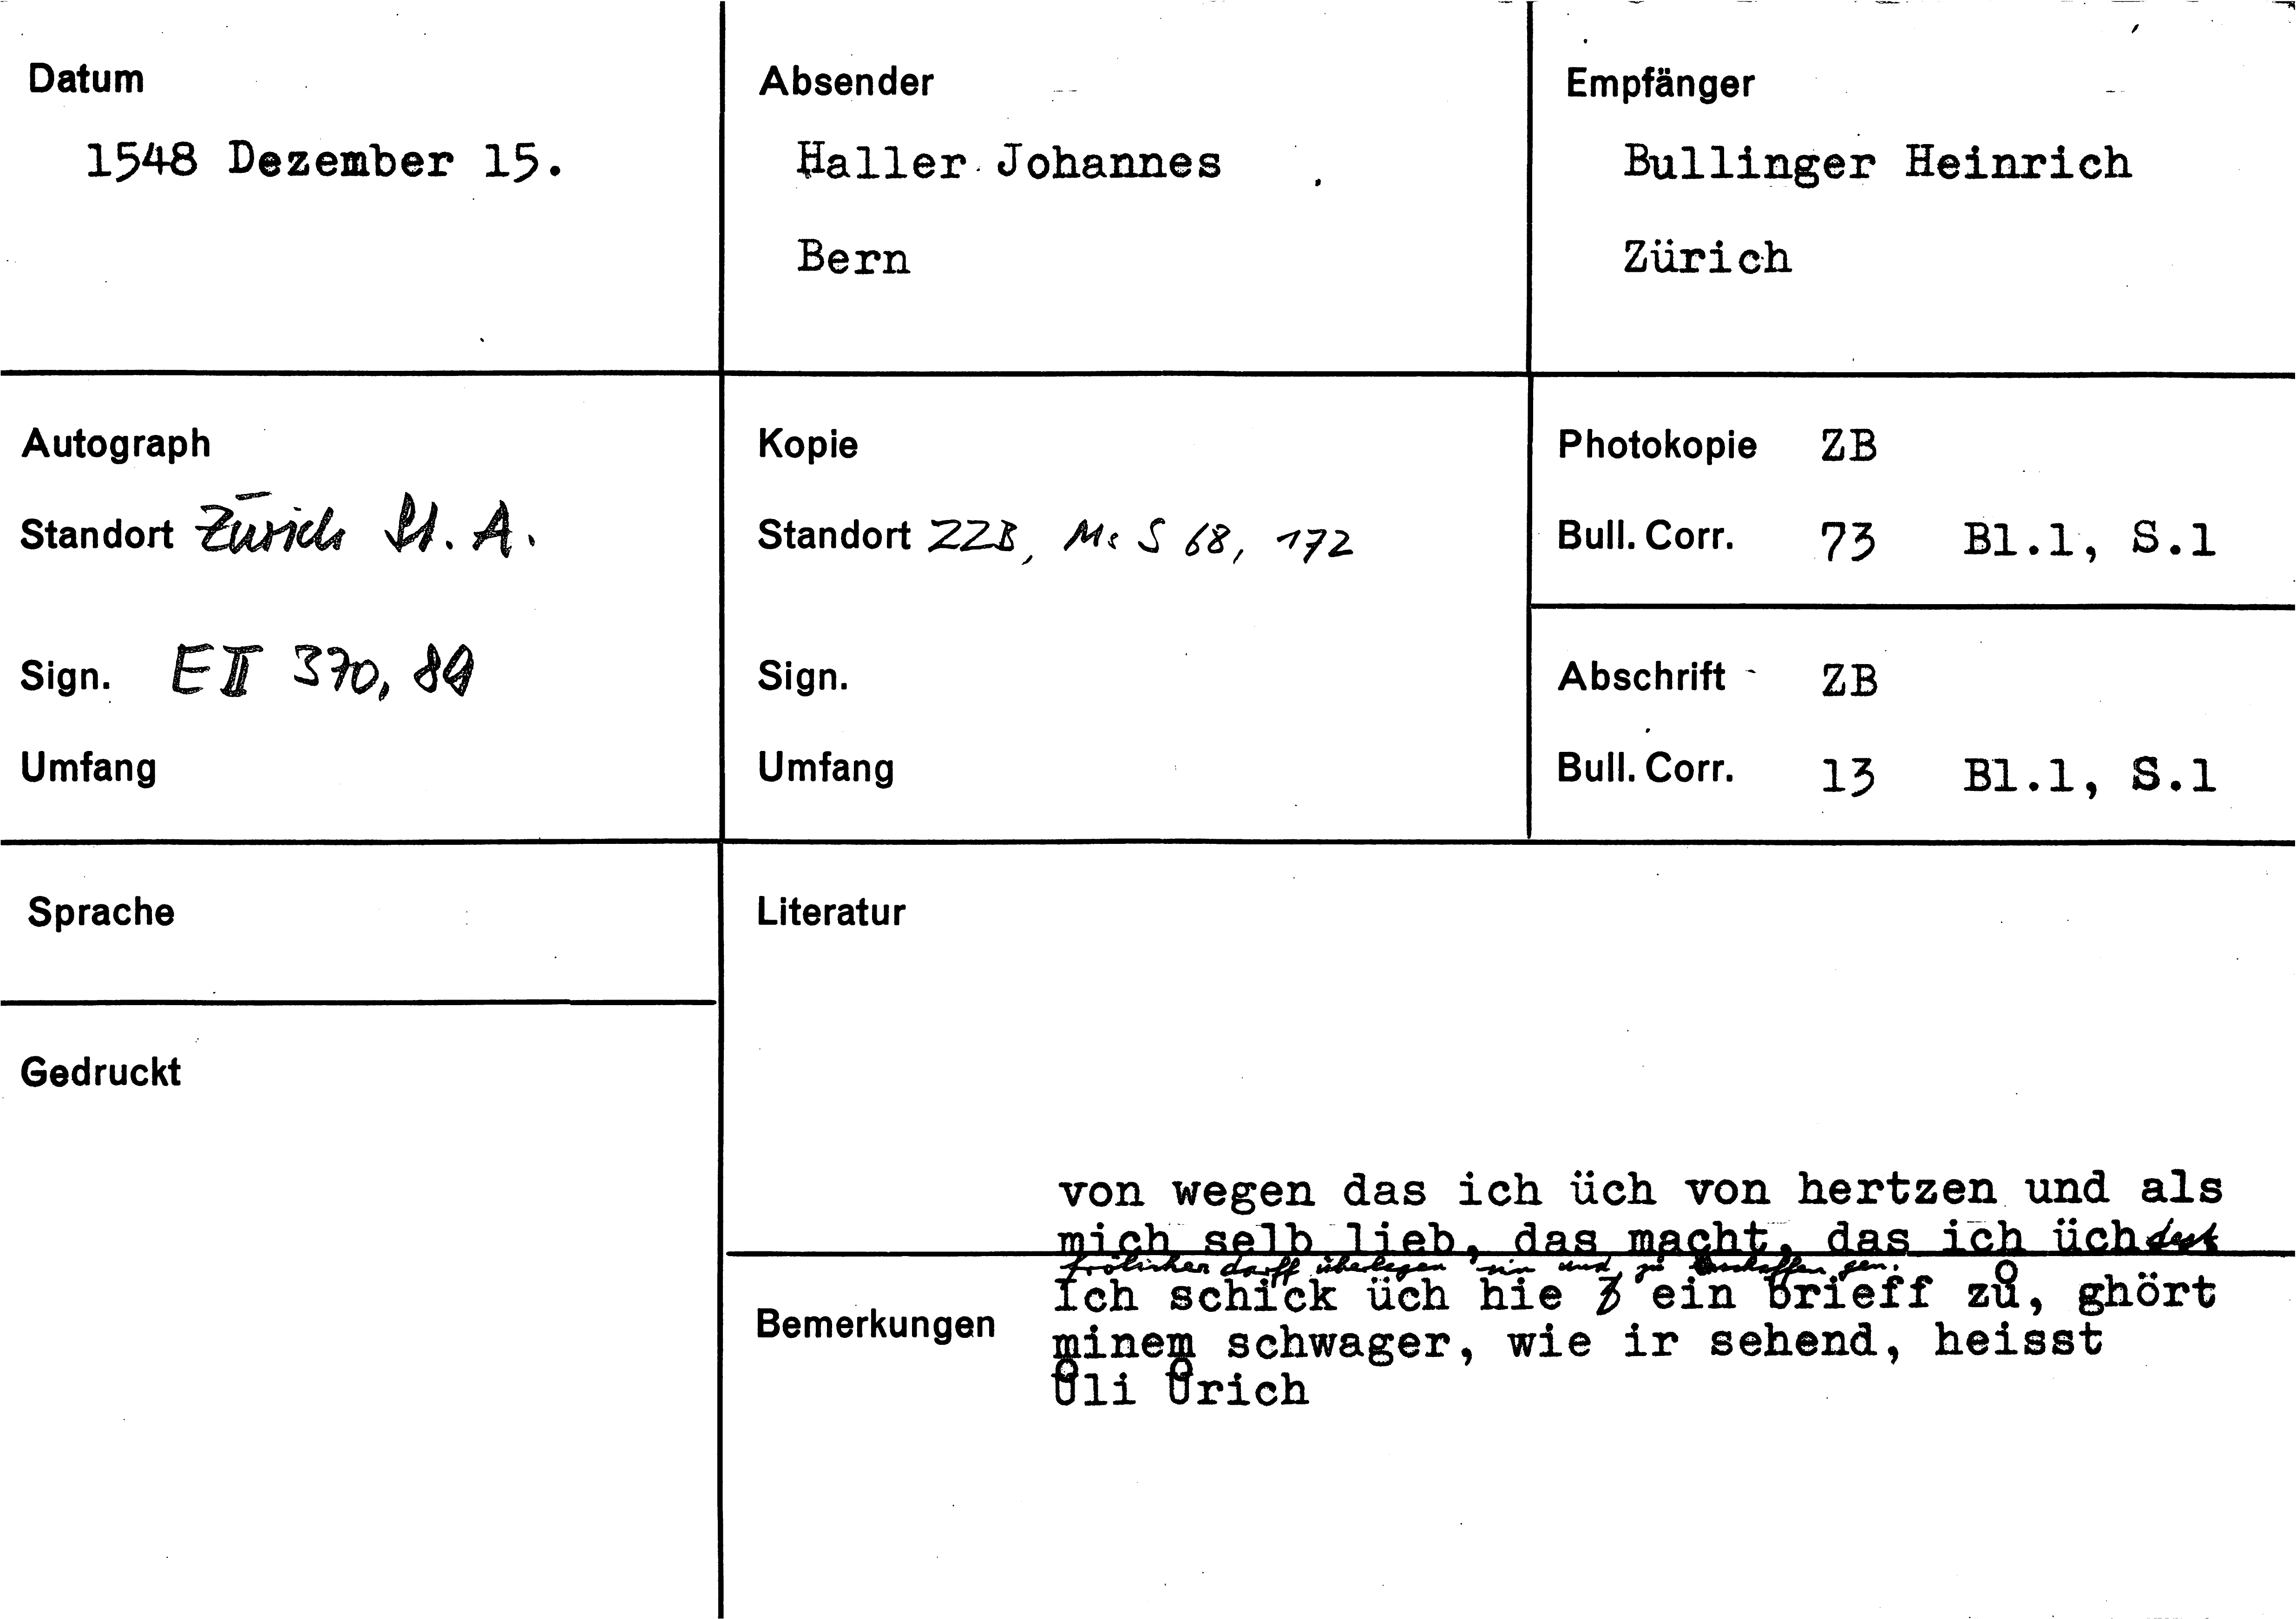 Datum
1548 Dezember 15.
Absender
Haller Johannes
Bern
Empfänger
Bullinger Heinrich
Zürich
Autograph
Standort Zürich St. A.
Sign. E II 370,
Umfang
Kopie
Standort ZZB, Ms S 68, 172
Sign.
Umfang
Photokopie ZB
Bull. Corr. 73 Bl.1, S.1
Abschrift ZB
Bull. Corr. 13 Bl.1, S.1
Sprache
Gedruckt
Literatur
von wegen das ich üch von hertzen und als
mich selb lieb, das macht, das ich üch dest
frölicher darff überlegen sin und zu schaffen gen.
Bemerkungen
Ich schick üch hie ein brieff zů, ghört
minem schwager, wie ir sehend, heisst
Ůli Ůrich